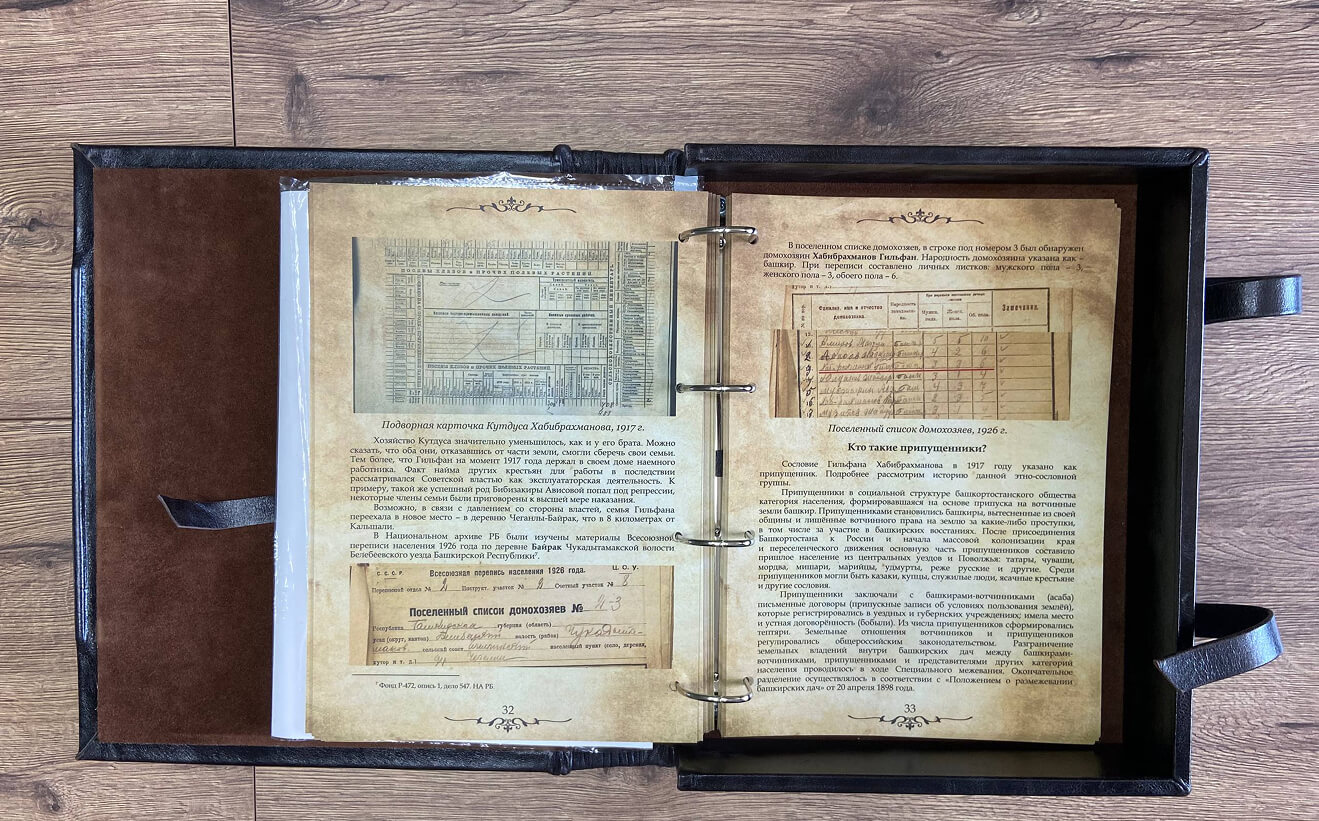 ПОСЕВЫ ХЛЕБОВ и ПРОЧИХ ПОЛЕВЫХ РАСТЕНИЙ.
ПОСЕВЫ ХЛЕБОВ и ПРОЧИХ ПОЛЕВЫХ РАСТЕНИЙ.
Подворная карточка Кутдуса Хабибрахманова, 1917 г.
Хозяйство Кутдуса значительно уменьшилось, как и у его брата. Можно
сказать, что оба они, отказавшись от части земли, смогли сберечь свои семьи.
Тем более, что Гильфан на момент 1917 года держал в своем доме наемного
работника. Факт найма других крестьян для работы в последствии
рассматривался Советской властью как эксплуататорская деятельность. К
примеру, такой же успешный род Бибизакиры Ависовой попал под репрессии,
некоторые члены семьи были приговорены к высшей мере наказания.
Возможно, в связи с давлением со стороны властей, семья Гильфана
переехала в новое место – в деревню Чеганлы-Байрак, что в 8 километрах от
Калышали.
В Национальном архиве РБ были изучены материалы Всесоюзной
переписи населения 1926 года по деревне Байрак Чукадытамакской волости
Белебеевского уезда Башкирской Республики⁷.
С. С. С. Р. Всесоюзная перепись населения 1926 года. Ц. С. У.
Переписной отдел № 2 Инструкт. участок № 2 Счетный участок № 8
Поселенный список домохозяев №
Республика губерния (область)
уезд (округ, кантон) волость (район)
сельский совет населенный пункт (село, деревня,
хутор и т. д.)
⁷ Фонд Р-472, опись 1, дело 547. НА РБ.
32
В поселенном списке домохозяев, в строке под номером 3 был обнаружен
домохозяин Хабибрахманов Гильфан. Народность домохозяина указана как –
башкир. При переписи составлено личных листков: мужского пола – 3,
женского пола – 3, обоего пола – 6.
хутор и т. д.)
Фамилия, имя и отчество домохозяина.
Замечания.
Поселенный список домохозяев, 1926 г.
Кто такие припущенники?
Сословие Гильфана Хабибрахманова в 1917 году указано как
припущенник. Подробнее рассмотрим историю данной этно-сословной
группы.
Припущенники в социальной структуре башкортостанского общества
категория населения, формировавшаяся на основе припуска на вотчинные
земли башкир. Припущенниками становились башкиры, вытесненные из своей
общины и лишённые вотчинного права на землю за какие-либо проступки,
в том числе за участие в башкирских восстаниях. После присоединения
Башкортостана к России и начала массовой колонизации края
и переселенческого движения основную часть припущенников составило
пришлое население из центральных уездов и Поволжья: татары, чуваши,
мордва, мишари, марийцы, удмурты, реже русские и другие. Среди
припущенников могли быть казаки, купцы, служилые люди, ясачные крестьяне
и другие сословия.
Припущенники заключали с башкирами-вотчинниками (асаба)
письменные договоры (припускные записи об условиях пользования землёй),
которые регистрировались в уездных и губернских учреждениях; имела место
и устная договорённость (бобыли). Из числа припущенников сформировались
тептяри. Земельные отношения вотчинников и припущенников
регулировались общероссийским законодательством. Разграничение
земельных владений внутри башкирских дач между башкирами-
вотчинниками, припущенниками и представителями других категорий
населения проводилось в ходе Специального межевания. Окончательное
разделение осуществлялось в соответствии с «Положением о размежевании
башкирских дач» от 20 апреля 1898 года.
33